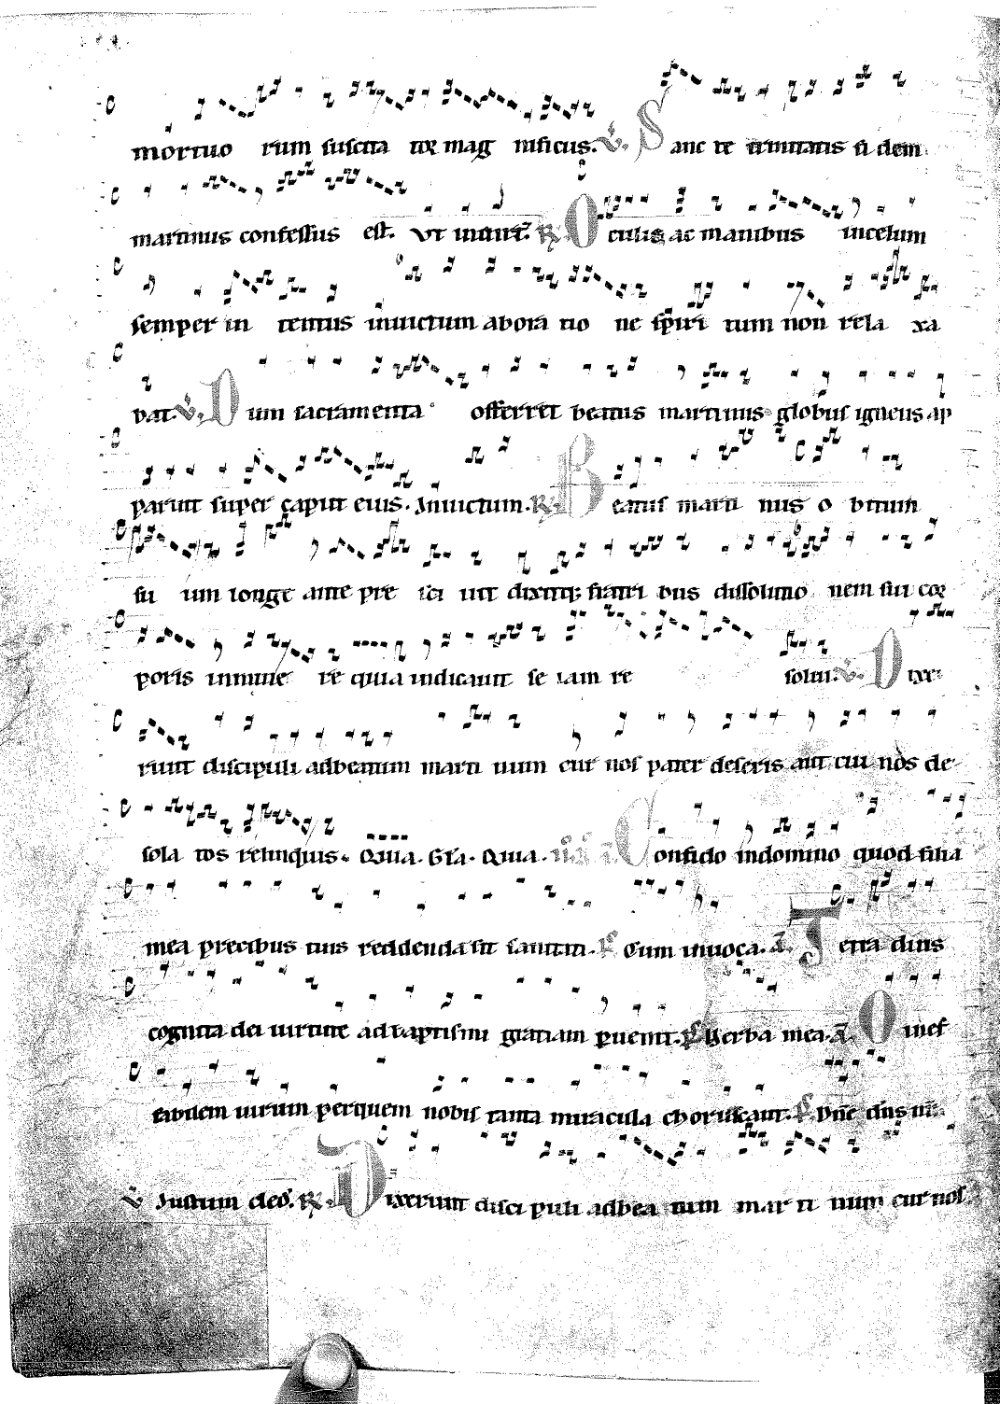 mortuo rum suscita tor mag nificus. V. Sanc te trinitatis fi dem
martinus confessus est. Ut inuict. R. Oculis ac manibus incelum
semper in tentus inuictum abora tio ne spiri tum non rela xa
bat. V. Dum sacramenta offerret beatus martinus globus igneus ap
paruit super caput eius. Inuictum. R. Beatus marti nus o bitum
su um longe ante pre sci uit dixitq; fratri bus dissolutio nem sui cor
poris inmine re quia indicauit se iam re solui. V. Dixe
runt discipuli adbeatum marti num cur nos pater deseris aut cui nos de
sola tos relinquis. Quia. Gla. Quia. Confido indomino quod filia
mea precibus tuis reddenda sit sanitati. ps Cum inuoca. a. Tetra dius
cognita dei uirtute ad baptismi gratiam puenit. ps Verba mea. a. O inef
fabilem uirum perquem nobis tanta miracula choruscant. ps Dne dns nr.
V. Iustum deduc. R. Dixerunt disci puli adbea tum mar ti num cur nos